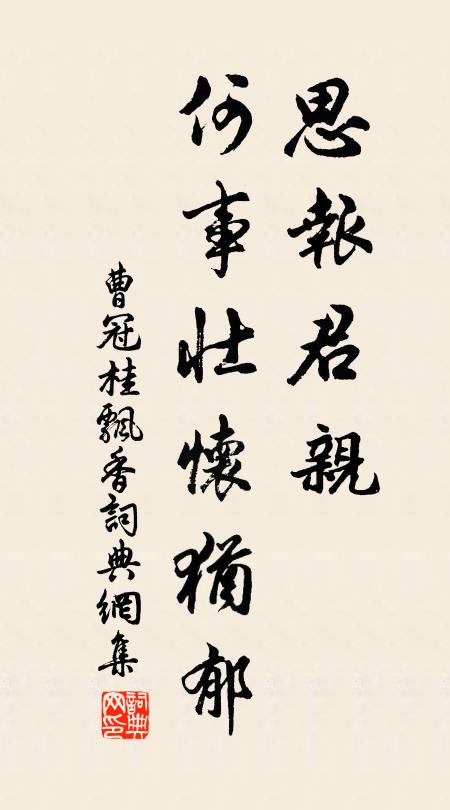 思報君親
何事壯懷猶郁
曹冠桂飄香詞典網集
詞典網印